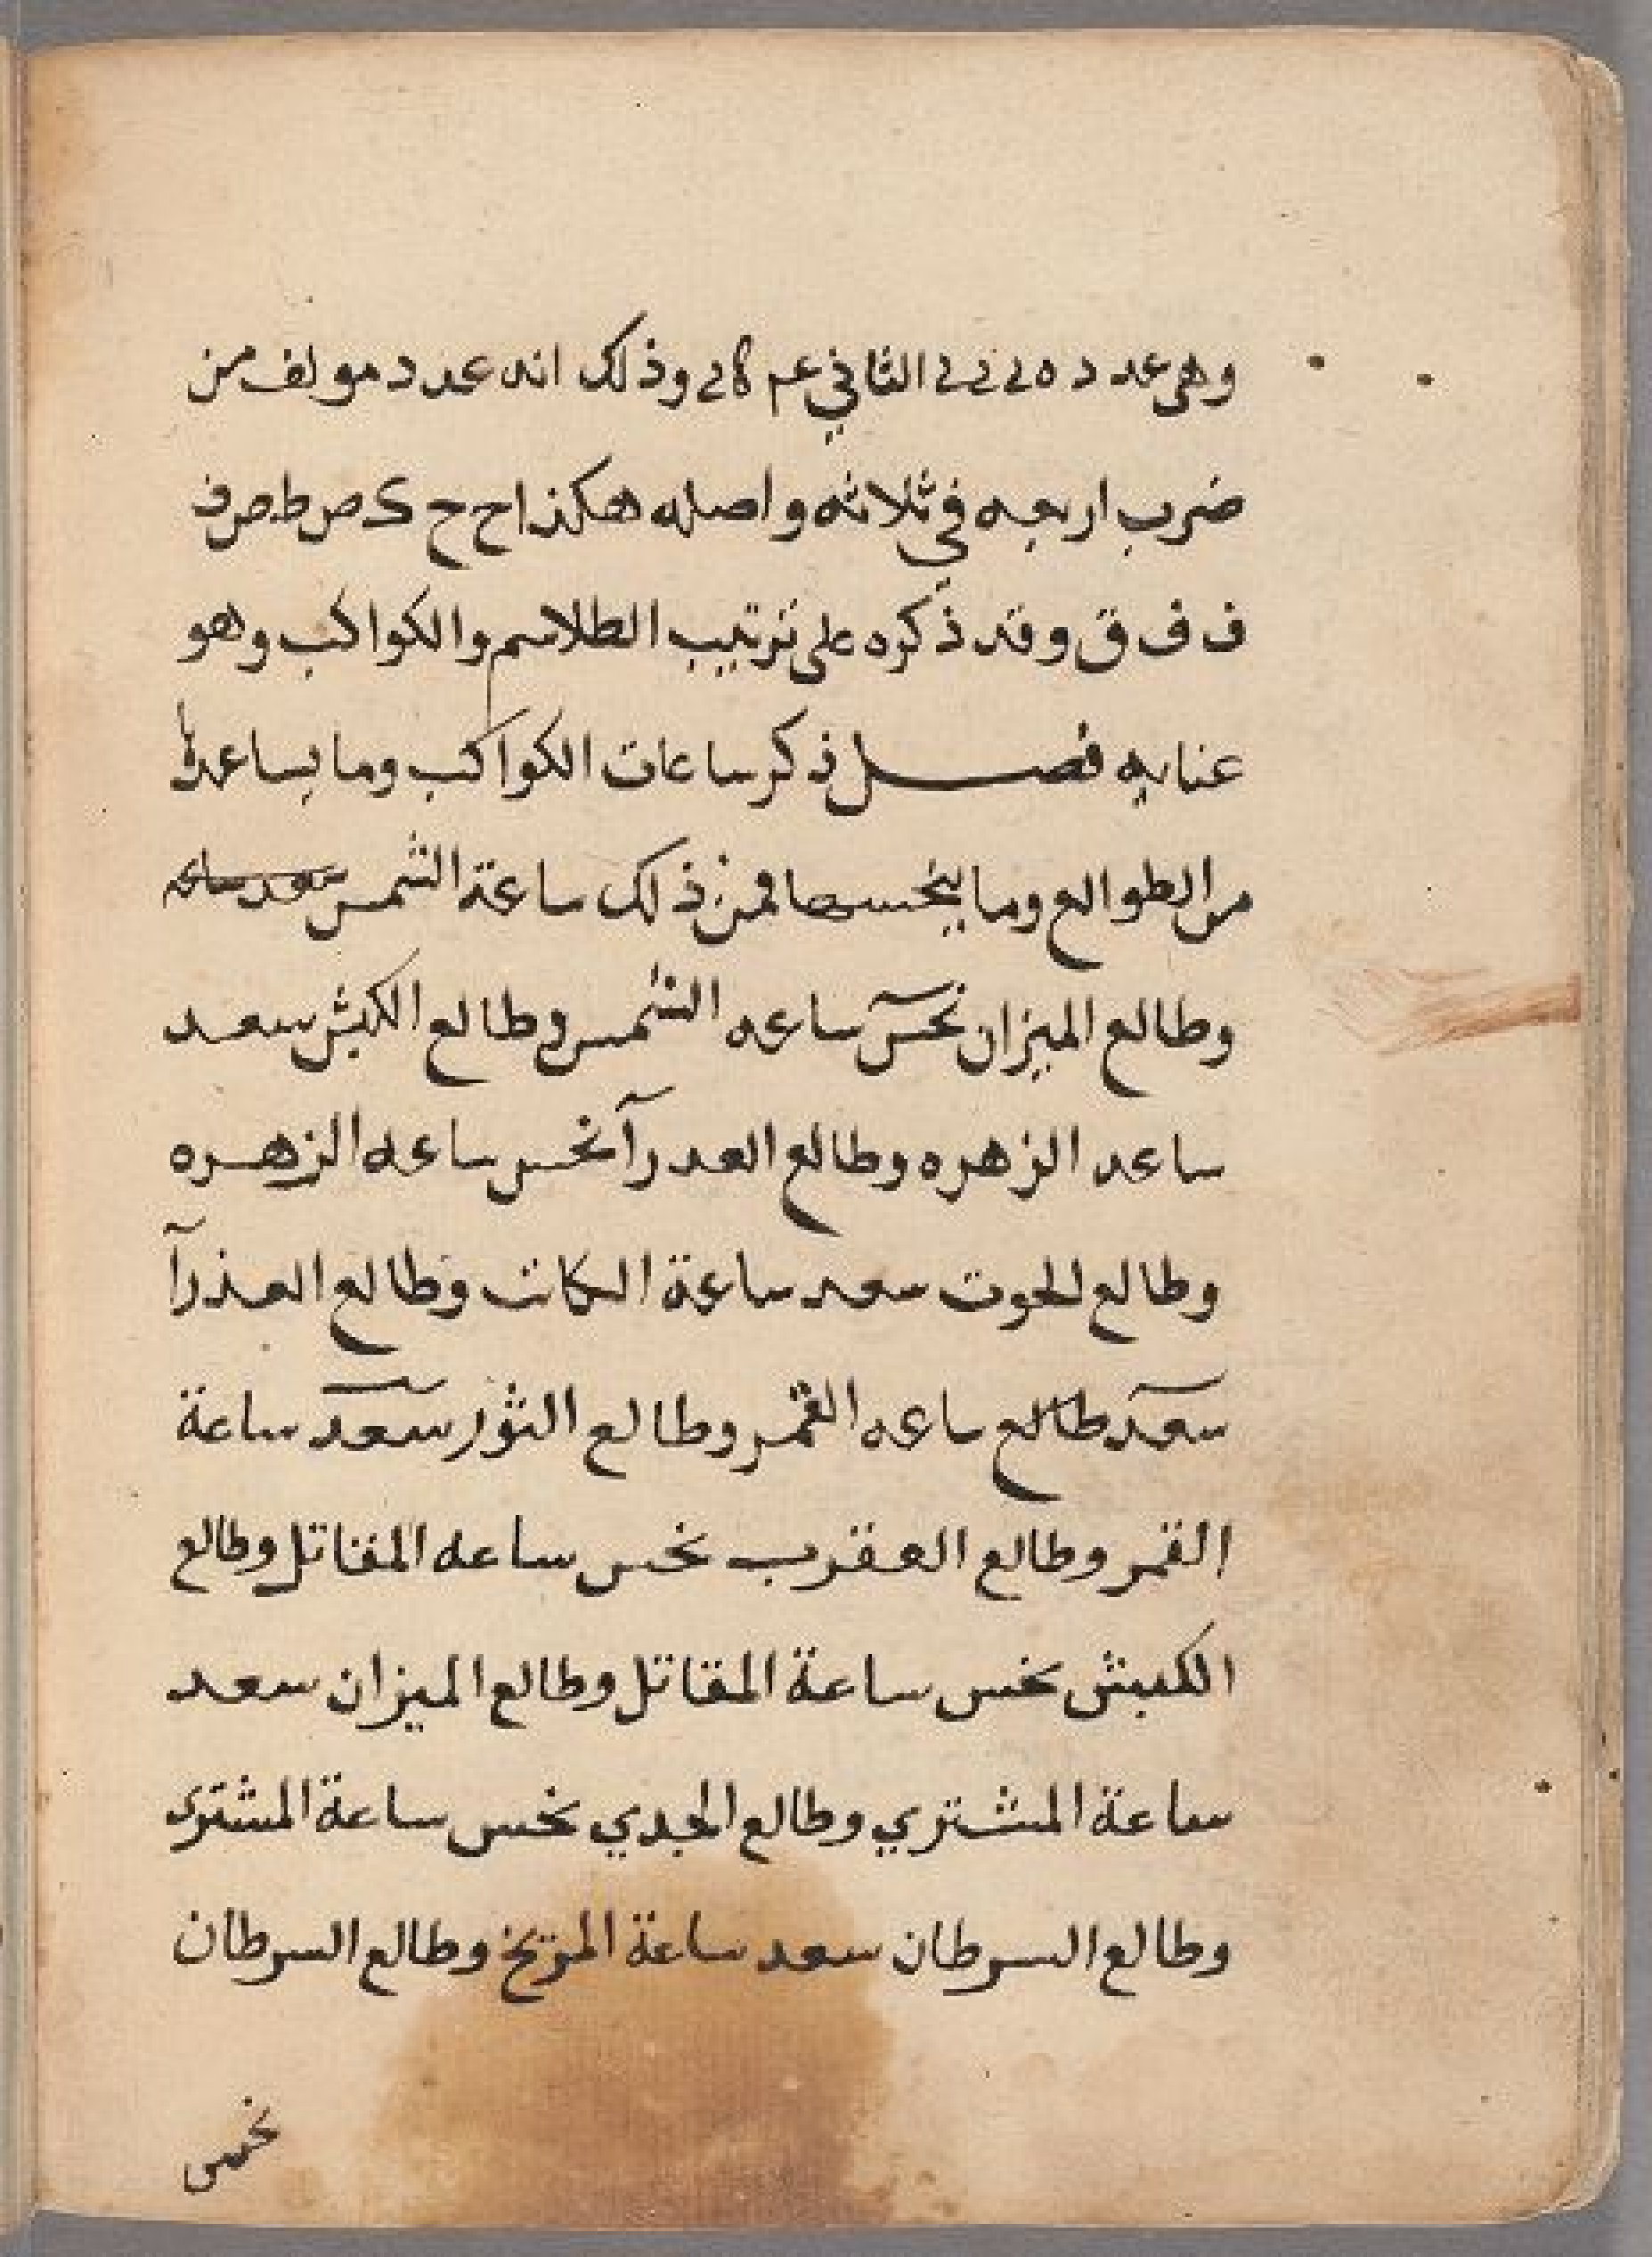 وهى عدد الثاني وذلك انه عدد مولف من
ضرب اربعه فى ثلاثه واصله هكذا ح ح ك ص ط ص ف
ف ف ق وقد ذكره على ترتيب الطلاسم والكواكب وهو
عنايه فصل ذكر ساعات الكواكب وما يساعدها
من الطوالع وما ينحسها فمن ذلك ساعة الشمس سعد ساعه
وطالع الميزان نحس ساعه الشمس وطالع الكبش سعد
ساعه الزهره وطالع العدرآ نحس ساعه الزهره
وطالع الحوت سعد ساعة الكاتب وطالع العذرآ
سعد طالع ساعه القمر وطالع الثور سعد ساعة
القمر وطالع العقرب نحس ساعه المقاتل وطالع
الكبش نحس ساعة المقاتل وطالع الميزان سعد
ساعة المشتري وطالع الجدي نحس ساعة المشترى
وطالع السرطان سعد ساعة المريخ وطالع السرطان
نحس